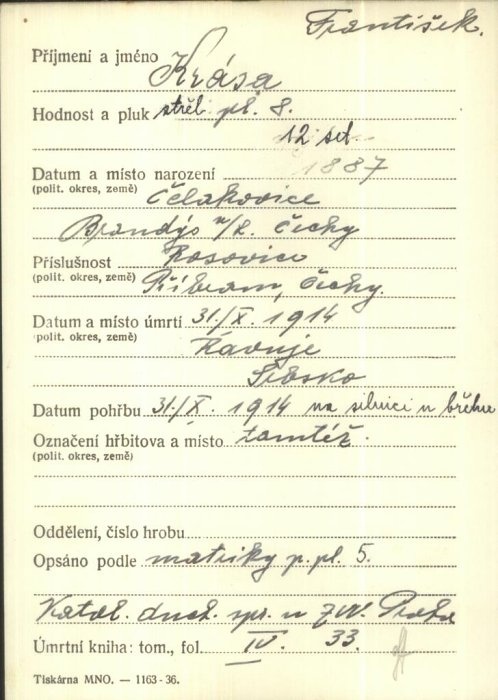 František.
Příjmení a jméno Krása
Hodnost a pluk střel. pl. 8.
12 set.
Datum a místo narození 1887
(polit. okres, země) Čelakovice
Brandýs n/L. Čechy
Příslušnost Rosovice
(polit. okres, země) Příbram, Čechy.
Datum a místo úmrtí 31./X. 1914
(polit. okres, země) Ravnje
Srbsko
Datum pohřbu 31./X. 1914 na silnici u břehu
Označení hřbitova a místo tamtéž.
(polit. okres, země)
Oddělení, číslo hrobu
Opsáno podle matriky p. pl. 5.
Katol. duch. spr. u ZVV. Praha
Úmrtní kniha: tom., fol. IV. 33.
Tiskárna MNO. — 1163 - 36.